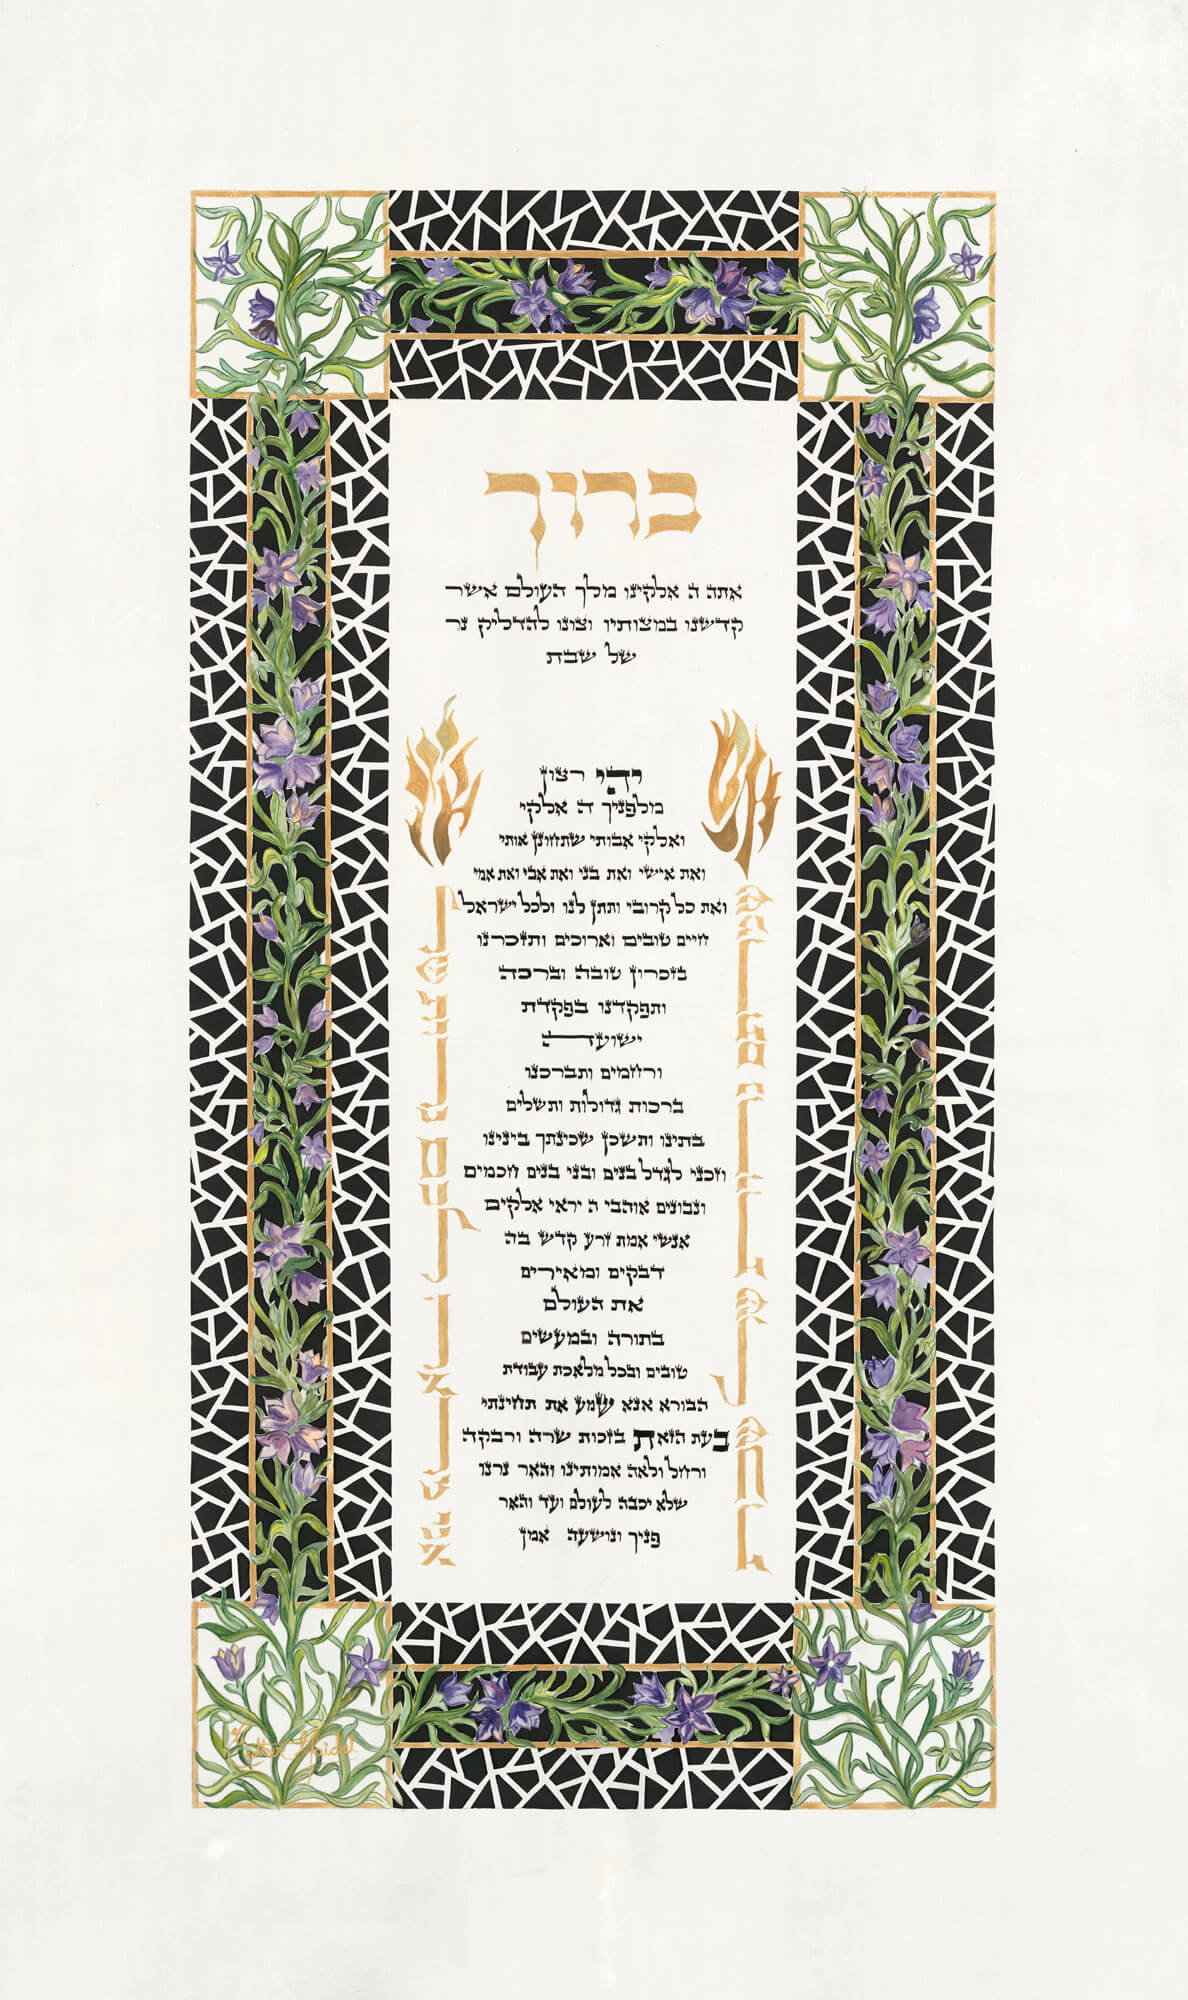 ברוך
אתה ה אלקינו מלך העולם אשר
קדשנו במצותיו וצונו להדליק נר
של שבת
יהי רצון
מלפניך ה אלקי
ואלקי אבותי שתחונן אותי
ואת אישי ואת בני ואת אבי ואת אמי
ואת כל קרובי ותתן לנו ולכל ישראל
חיים טובים וארוכים ותזכרנו
בזכרון טובה וברכה
ותפקדנו בפקדת
ישועה
ורחמים ותברכנו
ברכות גדולות ותשלים
בתינו ותשכן שכינתך בינינו
וזכני לגדל בנים ובני בנים חכמים
ונבונים אוהבי ה יראי אלקים
אנשי אמת זרע קדש בה
דבקים ומאירים
את העולם
בתורה ובמעשים
טובים ובכל מלאכת עבודת
הבורא אנא שמע את תחינתי
בעת הזאת בזכות שרה ורבקה
ורחל ולאה אמותינו והאר נרנו
שלא יכבה לעולם ועד והאר
פניך ונושעה אמן